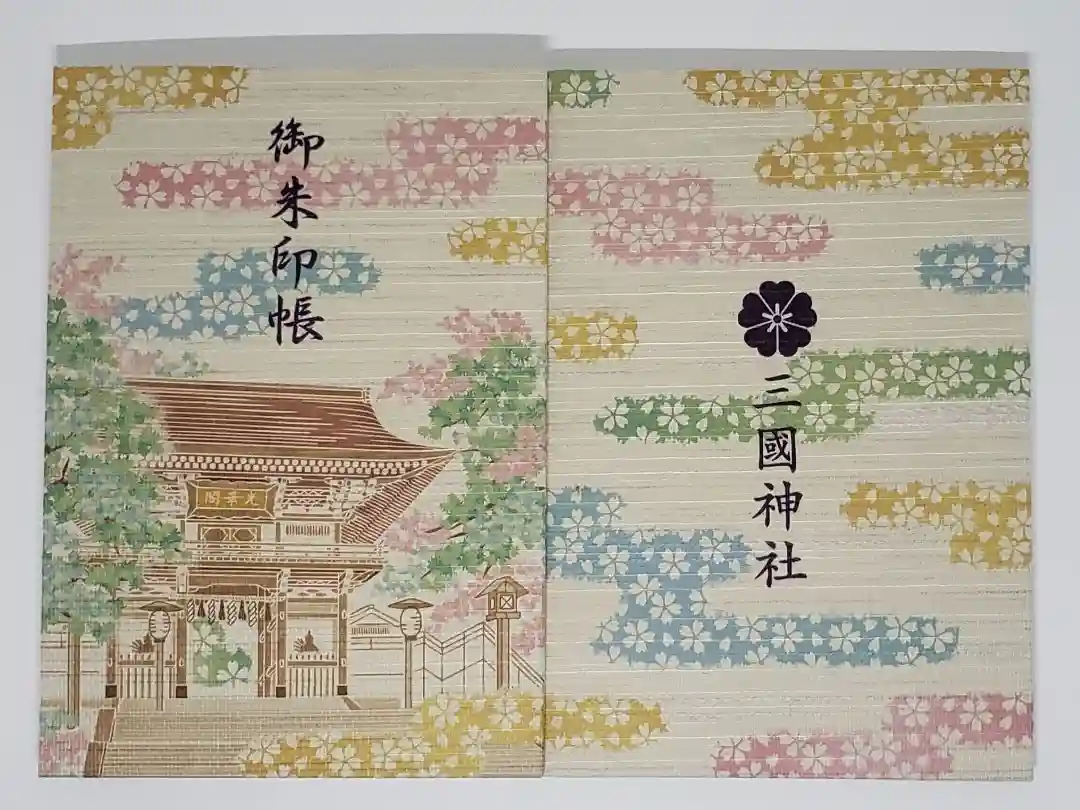 御朱印帳
三國神社